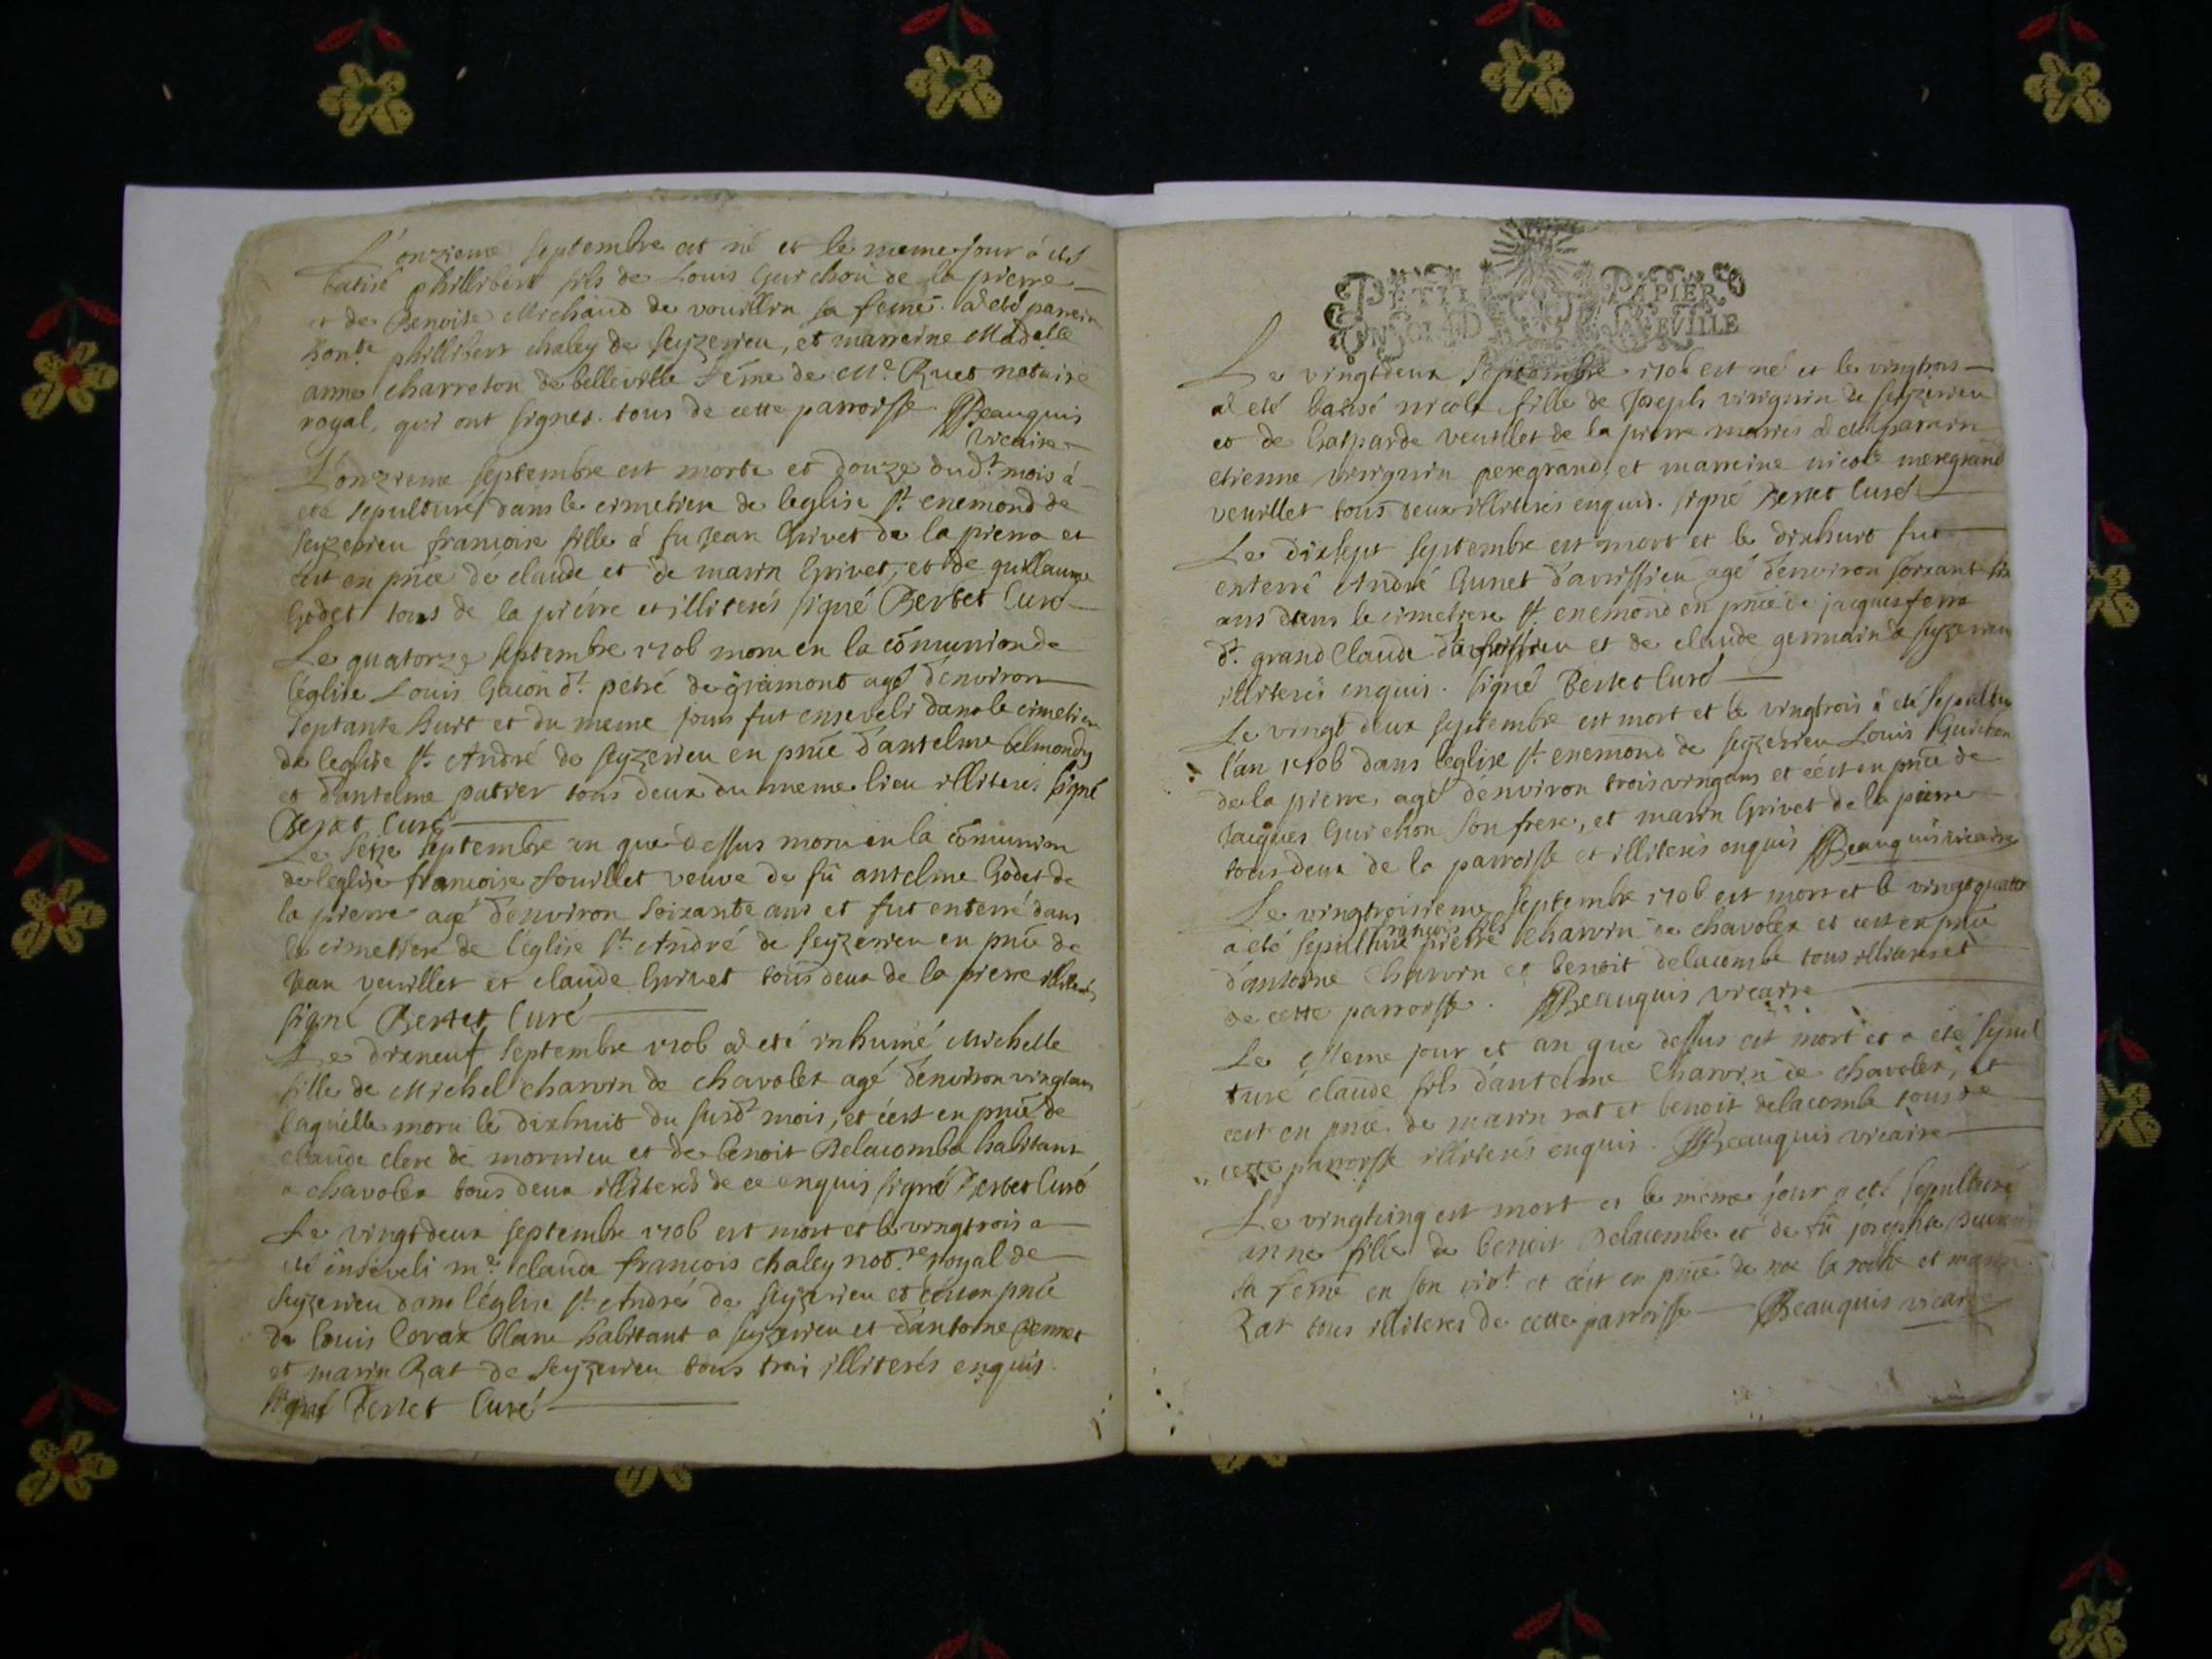 L'onzieme septembre est né et le meme jour à eté
batisé phillibert fils de Louis Guichon de la pierre
et de Benoite Michaud de vouillin sa feme. a eté parrein
hon.te phillibert chaley de seyzerieu, et marreine Mad.elle
anne charreton de belleville féme de M.e Ruet notaire
royal, qui ont signes. tous de cette parroisse. Beauquis
vicaire
L'onzieme septembre est morte et douze dud.t mois à
eté sepulturé dans le cimetiere de leglise s.t enemond de
seyzerieu francoise fille à fu Jean Grivet de la pierra et
cest en pñce de claude et de marin Grivet, et de guillaume
Godet tous de la piérre et illiterés signé Bertet Curé
Le quatorze septembre 1706 moru en la cõmunion de
léglise Louis Gacon d.t petré de gramont agé d'environ
septante huit et du meme jour fut enseveli dans le cimetiere
de leglise s.t André de seyzerieu en pñce d'antelme belmondy
et d'antelme patier tous deux du meme lieu illiterés signé
Bertet Curé
Le seize septembre an que dessus moru en la cõmunion
de leglise francoise souillet veuve de fû antelme Godet de
la pierre agé d'environ soixante ans et fut enterré dans
le cimettere de l'église s.t André de seyzerieu en pñce de
Jean veuillet et claude Grivet tous deux de la pierre illiterés
signé Bertet Curé
Le dixneuf septembre 1706 a eté inhumé Michelle
fille de Michel charvin de chavolet agé d'environ vingtans
laquelle moru le dixhuit du susd.t mois, et cést en pñce de
claude clerc de mornieu et de benoit Delacombe habitant
a chavolex tous deux illiterés de ce enquis signé Bertet Curé
Le vingtdeux septembre 1706 est mort et le vingtrois a
eté enseveli m.e claude françois chaley not.re royal de
seyzerieu dans l'église s.t André de seyzerieu et cést en pñce
de louis Covax blanc habitant a seyzerieu et d'antoine Pernet
et marin Rat de seyzerieu tous troi illiterés enquis.
signé Bertet Curé
PETIT PAPIER
Le vingtdeux septembre 1706 est né et le vingtrois
a eté batisé nicole fille de Joseph virignin de seyzerieu
et de Gasparde veuillet de la pierre mariés a eté parrein
etienne virignin peregrand, et marreine nicole meregrand
veuillet tous deux illiterés enquis. signé Bertet Curé
Le dixsept septembre est mort et le dixhuit fut
enterré André Gunet d'avrissieu agé d'environ soixant six
ans dans le cimetiere s.t enemond en pñce de jacques ferra
d.t grand Claude d'avrissieu et de claude germain de seyzerieu
illiterés enquis. signé Bertet Curé
Le vingt deux septembre est mort et le vingtrois à eté sepultu
l'an 1706 dans léglise s.t enemond de seyzerieu Louis Guichon
de la pierre, agé d'environ trois vingans et cést en pñce de
Jacques Guichon son frere, et marin Grivet de la pierre
tous deux de la parroisse et illiterés enquis Beauquis vicaire
Le vingtroisieme septembre 1706 est mort et le vingtquattre
francois fils
a eté sepulturé pierre charvin de chavolex et cest en pñce
d'antoine Charvin et benoit delacombe tous illiterés et
de cette parroisse. Beauquis vicaire
Le Meme jour et an que dessus est mort et a eté sepul
turé claude fils d'antelme Charvin de chavolex, et
cest en pñce de marin rat et benoit delacombe tous de
cette parroisse illiterés enquis. Beauquis vicaire
Le vingtcinq est mort et le mème jour a eté sepulturé
anne fille de benoit Delacombe et de fû josephte
sa féme en son viv.t et cést en pñce de noe la roche et marin
Rat tous illiteres de cette parroisse Beauquis vicaire